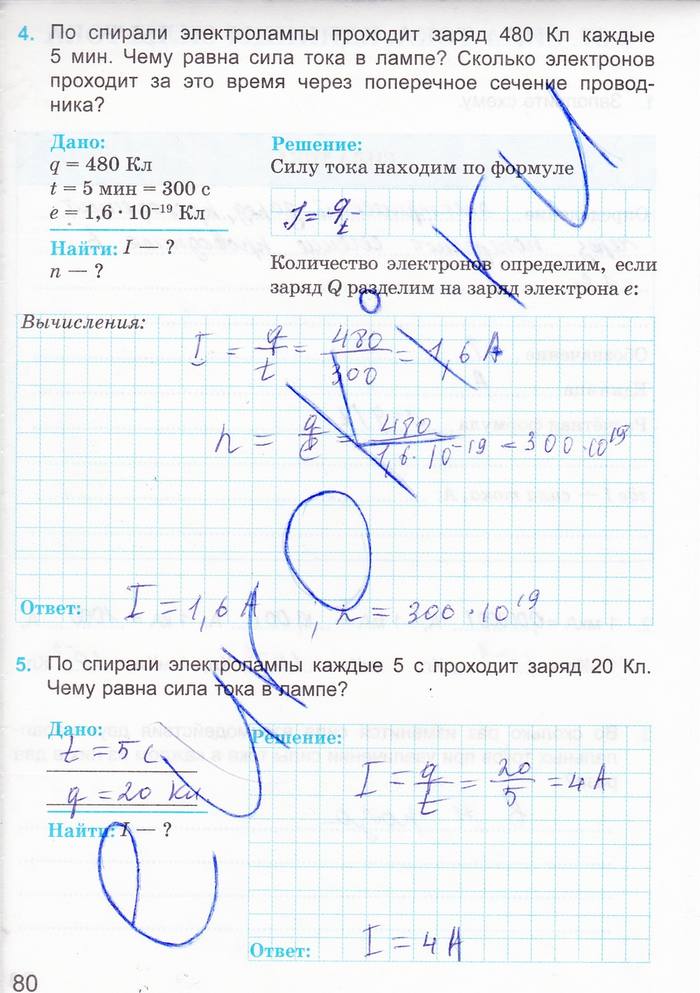 4. По спирали электролампы проходит заряд 480 Кл каждые
5 мин. Чему равна сила тока в лампе? Сколько электронов
проходит за это время через поперечное сечение провод-
ника?
Дано:
q = 480 Кл
t = 5 мин = 300 с
e = 1,6 · 10⁻¹⁹ Кл
Найти: I — ?
n — ?
Решение:
Силу тока находим по формуле
I = q/t
Количество электронов определим, если
заряд Q разделим на заряд электрона e:
Вычисления:
I = q/t = 480/300 = 1,6 А
n = q/e = 480/1,6·10⁻¹⁹ = 300·10¹⁹
Ответ: I = 1,6 А, n = 300·10¹⁹
5. По спирали электролампы каждые 5 с проходит заряд 20 Кл.
Чему равна сила тока в лампе?
Дано:
t = 5 с
q = 20 Кл
Найти: I — ?
Решение:
I = q/t = 20/5 = 4 А
Ответ: I = 4 А
80